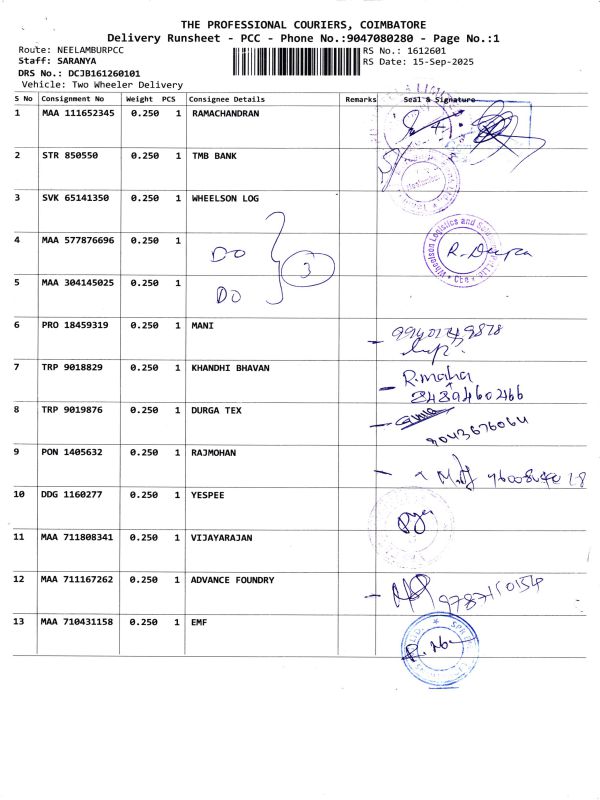 THE PROFESSIONAL COURIERS, COIMBATORE
Delivery Runsheet - PCC - Phone No.:9047080280 - Page No.:1
Route: NEELAMBURPCC
RS No.: 1612601
Staff: SARANYA
RS Date: 15-Sep-2025
DRS No.: DCJB161260101
Vehicle: Two Wheeler Delivery
S No Consignment No Weight PCS Consignee Details Remarks Seal & Signature
1 MAA 111652345 0.250 1 RAMACHANDRAN
2 STR 850550 0.250 1 TMB BANK
3 SVK 65141350 0.250 1 WHEELSON LOG
4 MAA 577876696 0.250 1 DO 3 R. Deepa
5 MAA 304145025 0.250 1 DO
6 PRO 18459319 0.250 1 MANI
7 TRP 9018829 0.250 1 KHANDHI BHAVAN R.maha
8489460266
8 TRP 9019876 0.250 1 DURGA TEX
9043676064
9 PON 1405632 0.250 1 RAJMOHAN
10 DDG 1160277 0.250 1 YESPEE
11 MAA 711808341 0.250 1 VIJAYARAJAN
12 MAA 711167262 0.250 1 ADVANCE FOUNDRY 9787150154
13 MAA 710431158 0.250 1 EMF